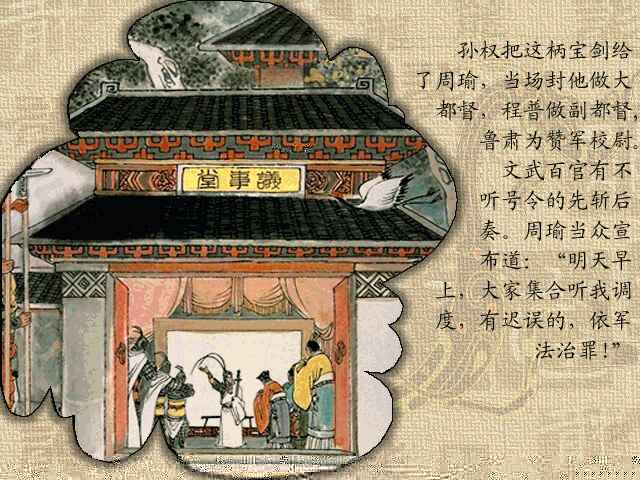 孙权把这柄宝剑给
了周瑜，当场封他做大
都督，程普做副都督，
鲁肃为赞军校尉。
文武百官有不
听号令的先斩后
奏。周瑜当众宣
布道：“明天早
上，大家集合听我调
度，有迟误的，依军
法治罪！”
堂事議